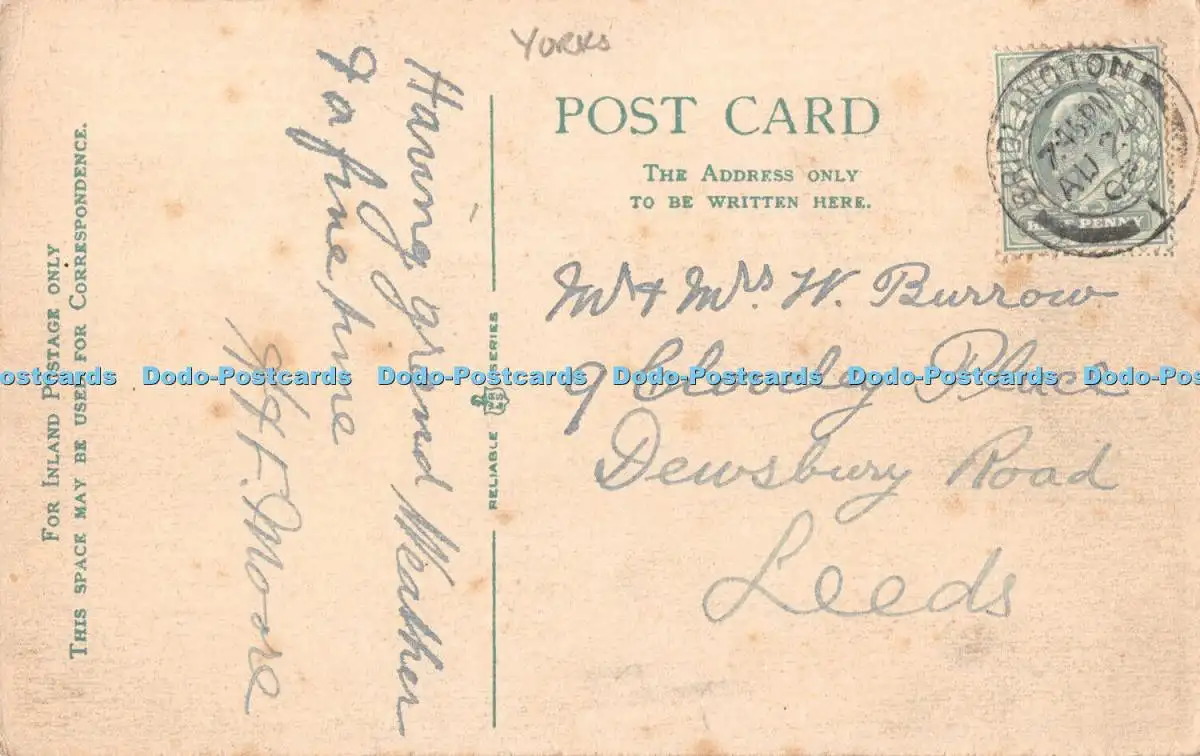 YORKS
POST CARD
THE ADDRESS ONLY
TO BE WRITTEN HERE.
BRIDLINGTON
7.45 PM
AU 24
PENNY
Mr & Mrs W. Burrow
9 Place
Dewsbury Road
Leeds
FOR INLAND POSTAGE ONLY
THIS SPACE MAY BE USED FOR CORRESPONDENCE.
Having grand Weather
& a fine time
F. Moore
RELIABLE SERIES
Dodo-Postcards Dodo-Postcards Dodo-Postcards Dodo-Postcards